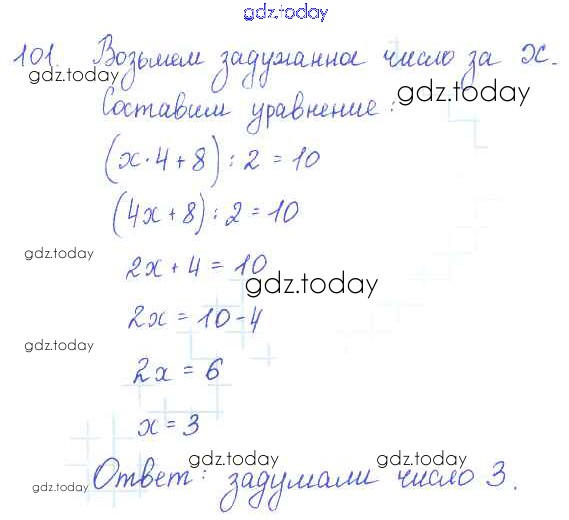 gdz.today
101. Возьмем задуманное число за x.
gdz.today
gdz.today
Составим уравнение:
(x·4+8):2=10
(4x+8):2=10
gdz.today
2x+4=10
gdz.today
2x=10-4
gdz.today
2x=6
x=3
gdz.today
gdz.today
Ответ: задумали число 3.
gdz.today